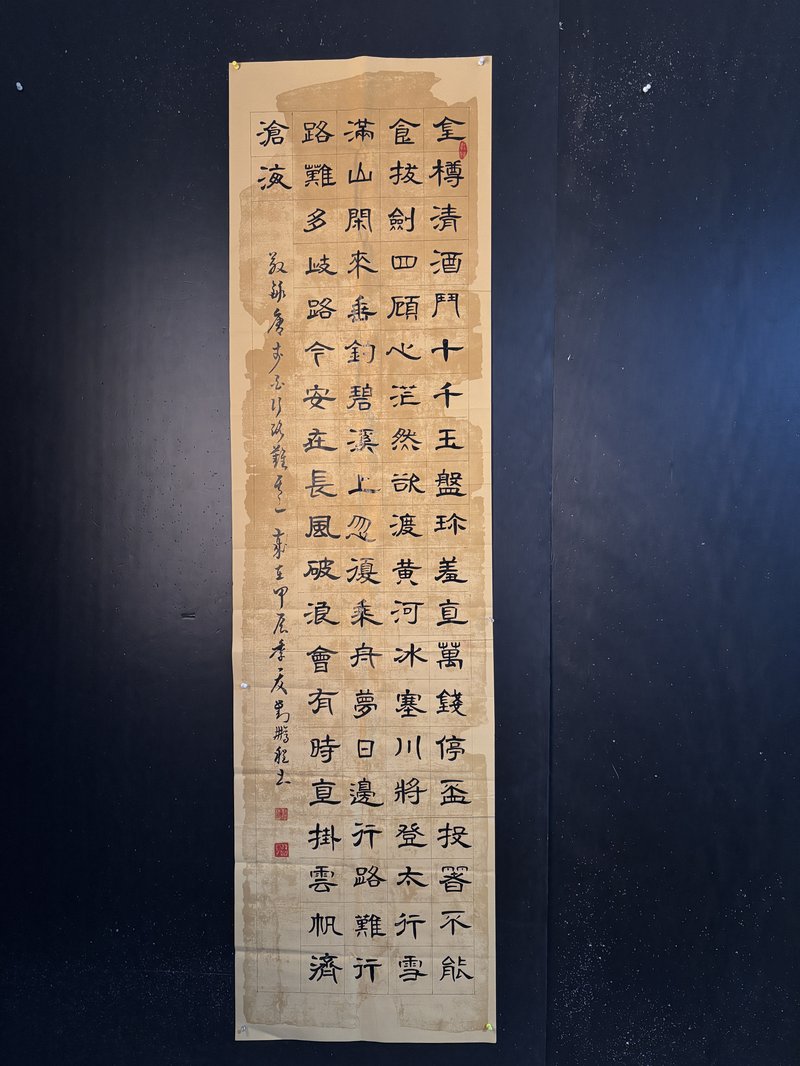 金樽清酒鬥十千玉盤珎羞直萬錢停盃投箸不能
食拔劍四顧心茫然欲渡黃河冰塞川將登太行雪
滿山閑來垂釣碧溪上忽復乘舟夢日邊行路難行
路難多歧路今安在長風破浪會有時直掛雲帆濟
滄海
敬錄唐李白行路難其一 歲在甲辰季夏劉鵬程書